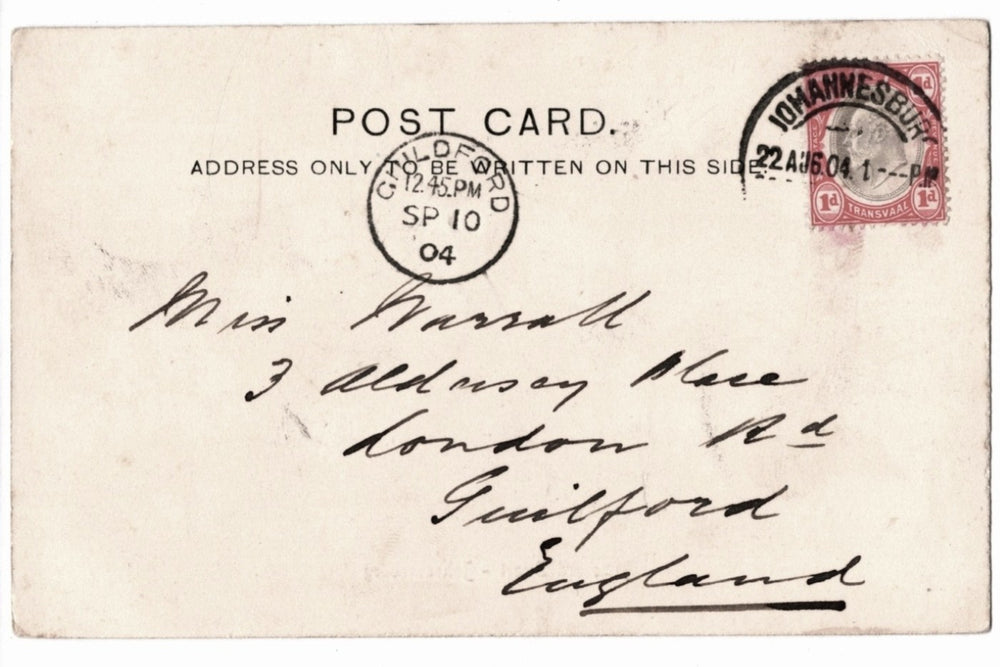 POST CARD.
ADDRESS ONLY TO BE WRITTEN ON THIS SIDE.
JOHANNESBUR
22 AUG.04. 1 - - - PM
1d
TRANSVAAL
1d
GUILDFORD
12.45.PM
SP 10
04
Miss Warrall
3 Aldersey Place
London Rd
Guilford
England